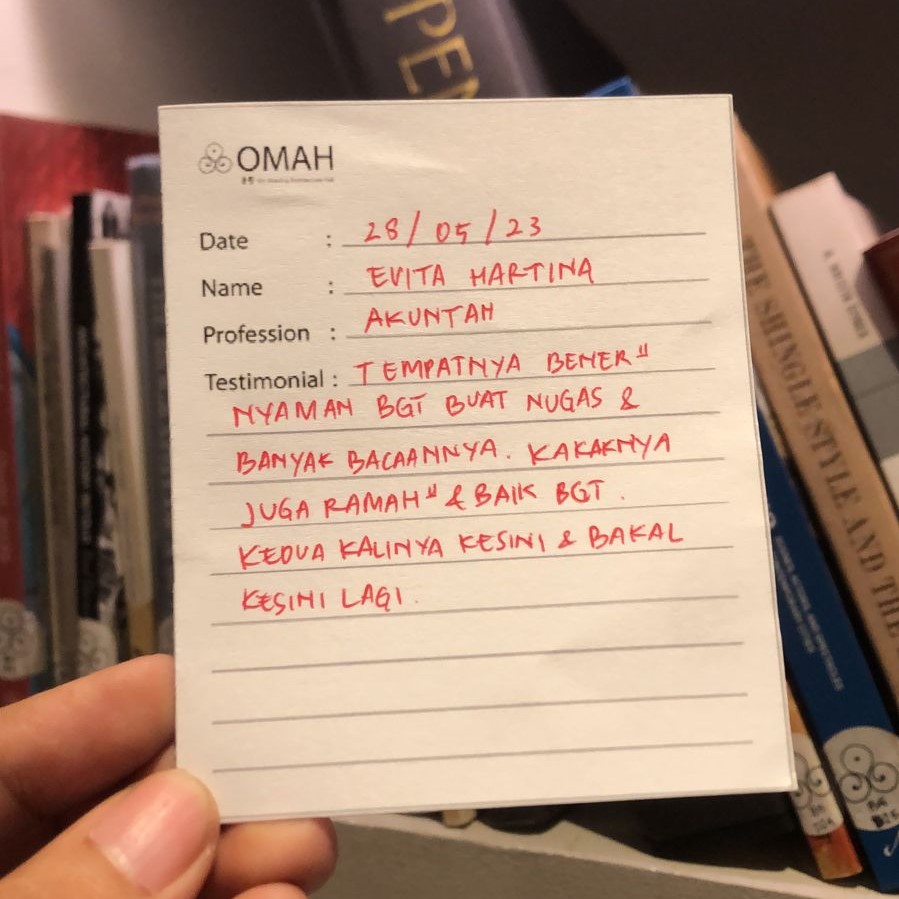 PEN
OMAH
Date : 28/05/23
Name : EVITA HARTINA
Profession : AKUNTAN
Testimonial : TEMPATNYA BENER"
NYAMAN BGT BUAT NUGAS &
BANYAK BACAANNYA. KAKAKNYA
JUGA RAMAH" & BAIK BGT.
KEDUA KALINYA KESINI & BAKAL
KESINI LAGI.
THE SHINGLE STYLE AND THE